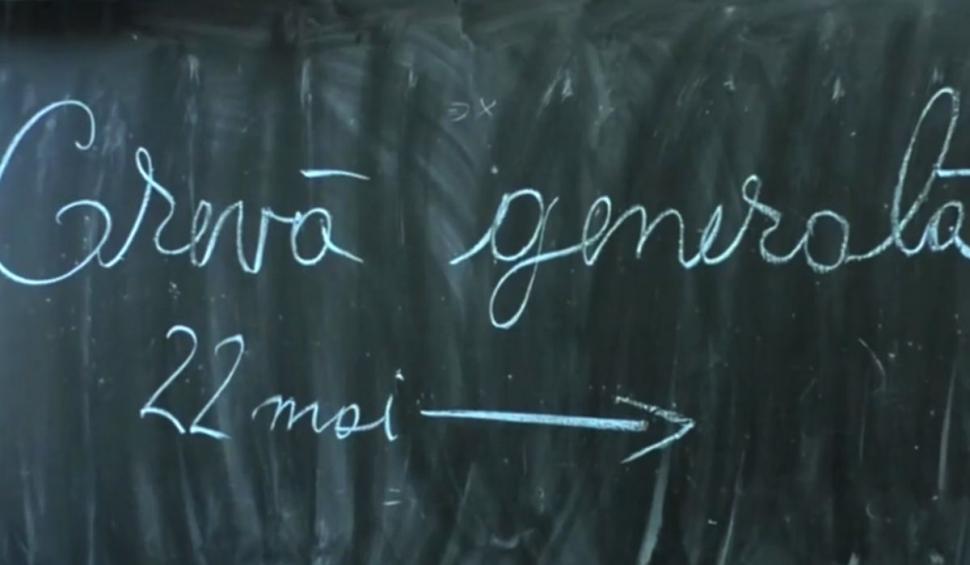 Grevă generală
22 mai →